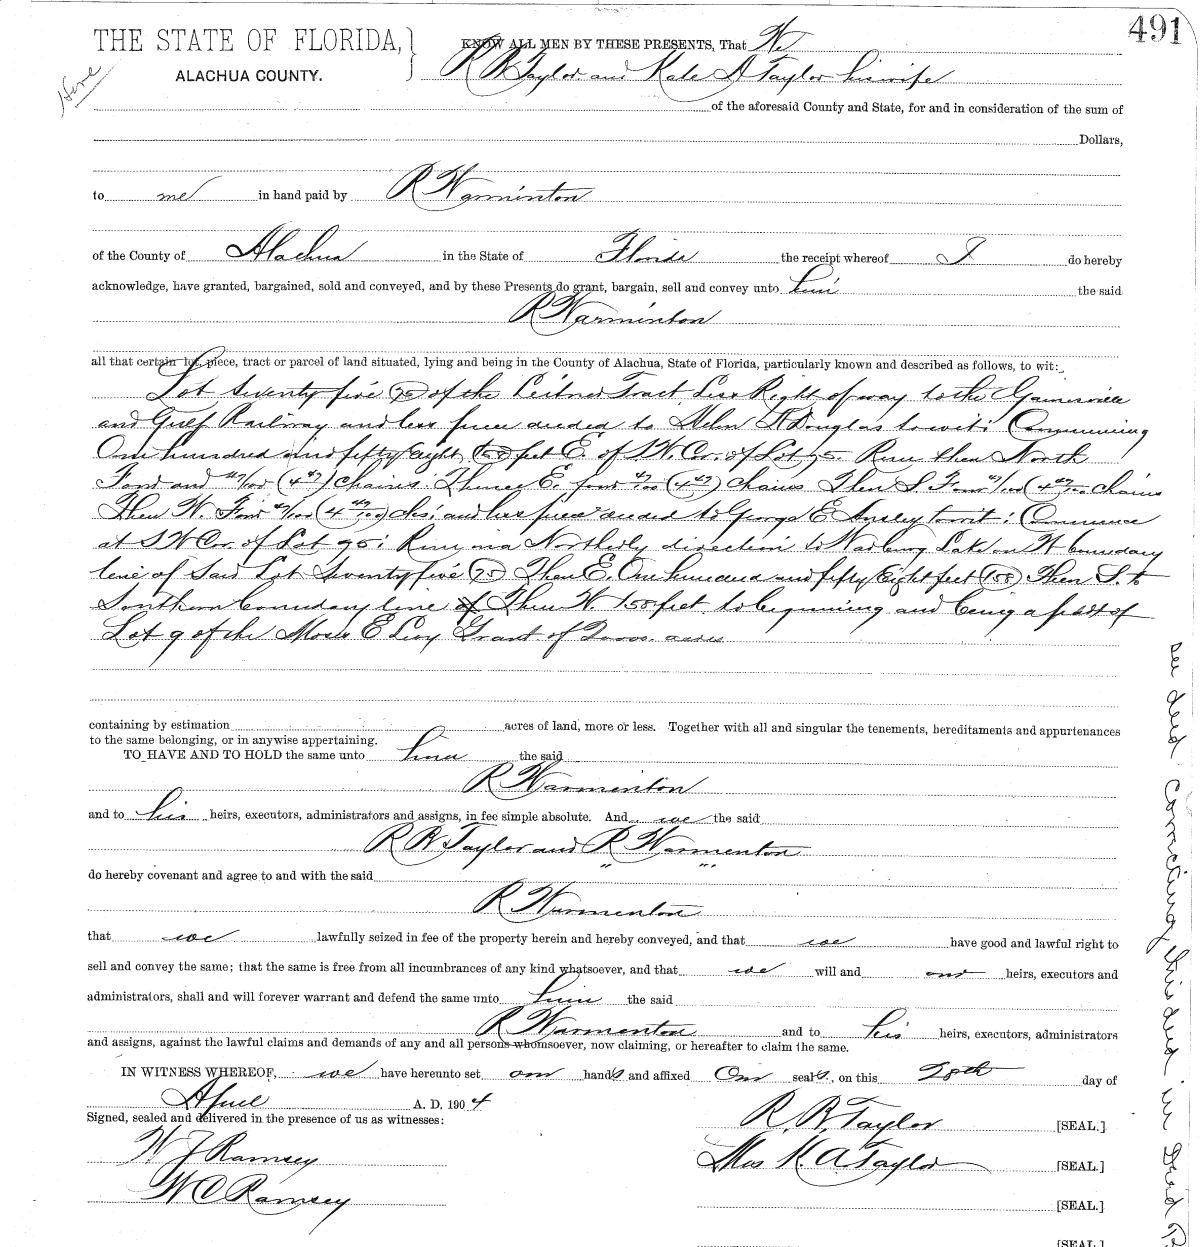 491
THE STATE OF FLORIDA,
ALACHUA COUNTY.
KNOW ALL MEN BY THESE PRESENTS, That We
R B Taylor and Kate A Taylor his wife
of the aforesaid County and State, for and in consideration of the sum of
Dollars,
to me in hand paid by R Warminton
of the County of Alachua in the State of Florida the receipt whereof I do hereby
acknowledge, have granted, bargained, sold and conveyed, and by these Presents do grant, bargain, sell and convey unto him the said
R Warminton
all that certain lot, piece, tract or parcel of land situated, lying and being in the County of Alachua, State of Florida, particularly known and described as follows, to wit:
Lot seventy five (75) of the Leitner Tract Less Right of way to the Gainesville
and Gulf Railway and less piece deeded to Helen Douglas to wit: Commencing
One hundred and fifty eight (158) feet E of S.W. Cor. of Lot 75. Run then North
Four and 47/100 (4 47) chains. Thence E. four 47/100 (4 47) chains Then S Four 47/100 (4 47/100 chains
Then W. Four 47/100 (4 47/100) chs: and less piece deeded to George E to wit: Commence
at S W Cor. of Lot 75: Run in a Northerly direction to Lake on W boundary
line of Said Lot Seventy five (75) Then E. One hundred and fifty Eight feet (158) Then S. to
Southern boundary line of Then W. 158 feet to beginning and being a part of
Lot 9 of the Moses E Levy Grant of acres
containing by estimation acres of land, more or less. Together with all and singular the tenements, hereditaments and appurtenances
to the same belonging, or in anywise appertaining.
TO HAVE AND TO HOLD the same unto him the said
R Warminton
and to his heirs, executors, administrators and assigns, in fee simple absolute. And we the said
R B Taylor and R Warmenton
do hereby covenant and agree to and with the said
R Warmenton
that we lawfully seized in fee of the property herein and hereby conveyed, and that we have good and lawful right to
sell and convey the same; that the same is free from all incumbrances of any kind whatsoever, and that we will and our heirs, executors and
administrators, shall and will forever warrant and defend the same unto him the said
R Warmenton and to his heirs, executors, administrators
and assigns, against the lawful claims and demands of any and all persons whomsoever, now claiming, or hereafter to claim the same.
IN WITNESS WHEREOF, we have hereunto set our hands and affixed Our seals, on this 28th day of
April A. D. 1904
Signed, sealed and delivered in the presence of us as witnesses:
R. B. Taylor [SEAL.]
W J Ramsey
Mrs K. A Taylor [SEAL.]
W C Ramsey
[SEAL.]
[SEAL.]
see deed Correcting this deed in Deed